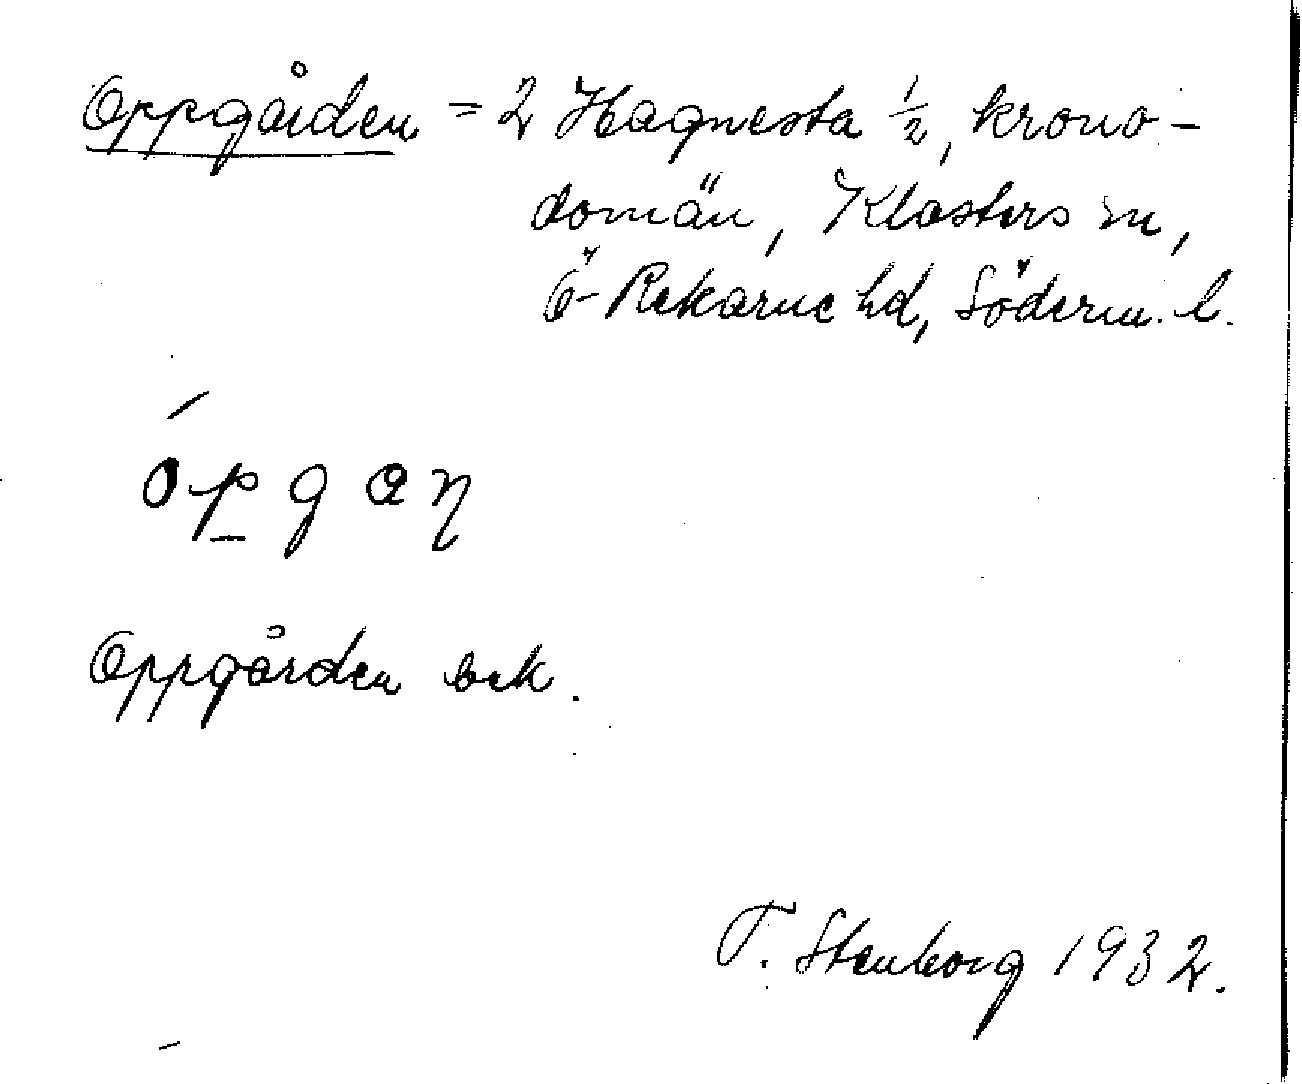 Oppgården = 2 Hagnesta ½, krono-
domän, Klosters sn,
Ö-Rekarne hd, Söderm. l.
ópgaṇ
Oppgården ek.
T. Stenborg 1932.